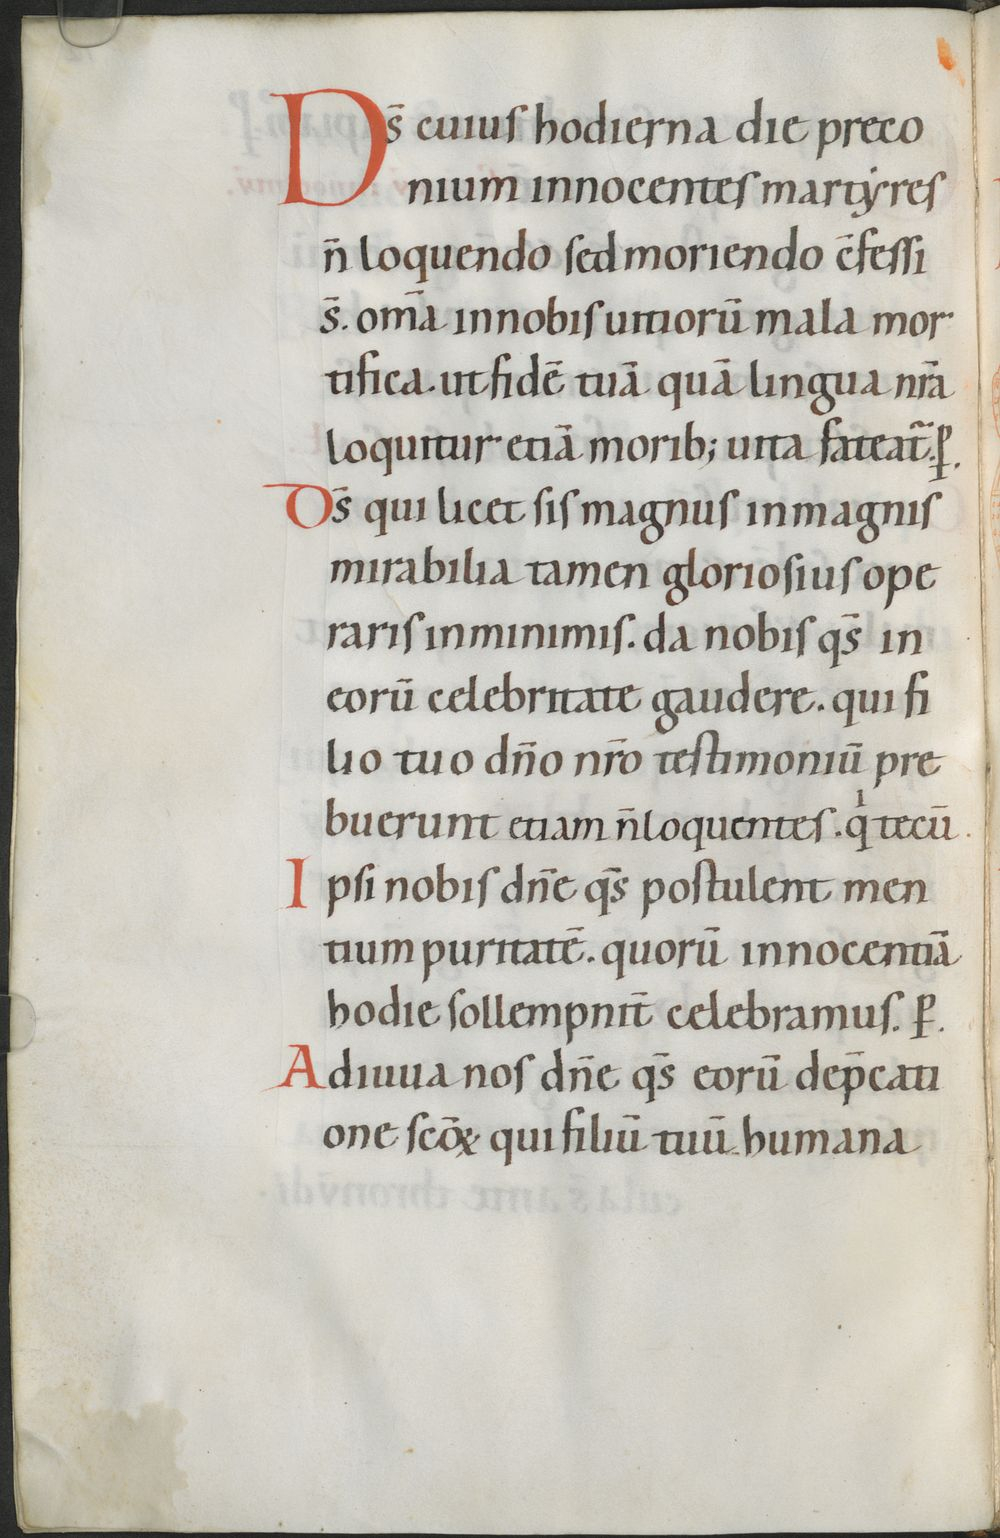 Ds̄ cuius hodierna die preco
nium innocentes martẏres
n̄ loquendo sed moriendo c̄fessi
s̄. om̄a in nobis uitiorū mala mor
tifica. ut fidē tuā quā lingua nr̄a
loquitur etiā morib; uita fateat̄. ꝑ.
Ds̄ qui licet sis magnus in magnis
mirabilia tamen gloriosius ope
raris in minimis. da nobis qs̄ in
eorū celebritate gaudere. qui fi
lio tuo dn̄o nr̄o testimoniū pre
buerunt etiam n̄ loquentes. qͥ tecū.
Ipsi nobis dn̄e qs̄ postulent men
tium puritatē. quorū innocentiā
hodie sollempnit̄ celebramus. ꝑ.
Adiuua nos dn̄e qs̄ eorū dep̄cati
one sc̄oꝝ qui filiū tuū humana